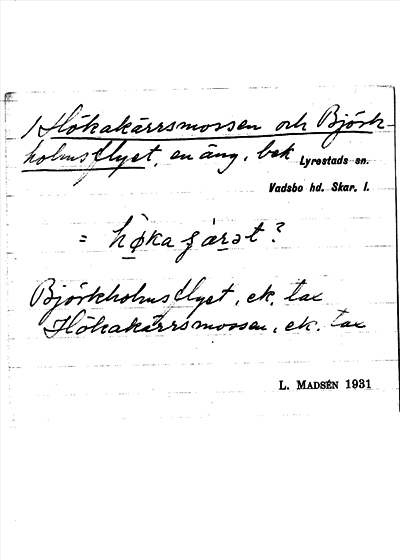 /Hökakärrsmossen och Björk-
holmsflyet, en äng, bek
Lyrestads sn.
Vadsbo hd. Skar. l.
= hø̀ka ʒárət?
Björkholmsflyet, ek. tax
Hökakärrsmossen, ek. tax
L. MADSÉN 1931